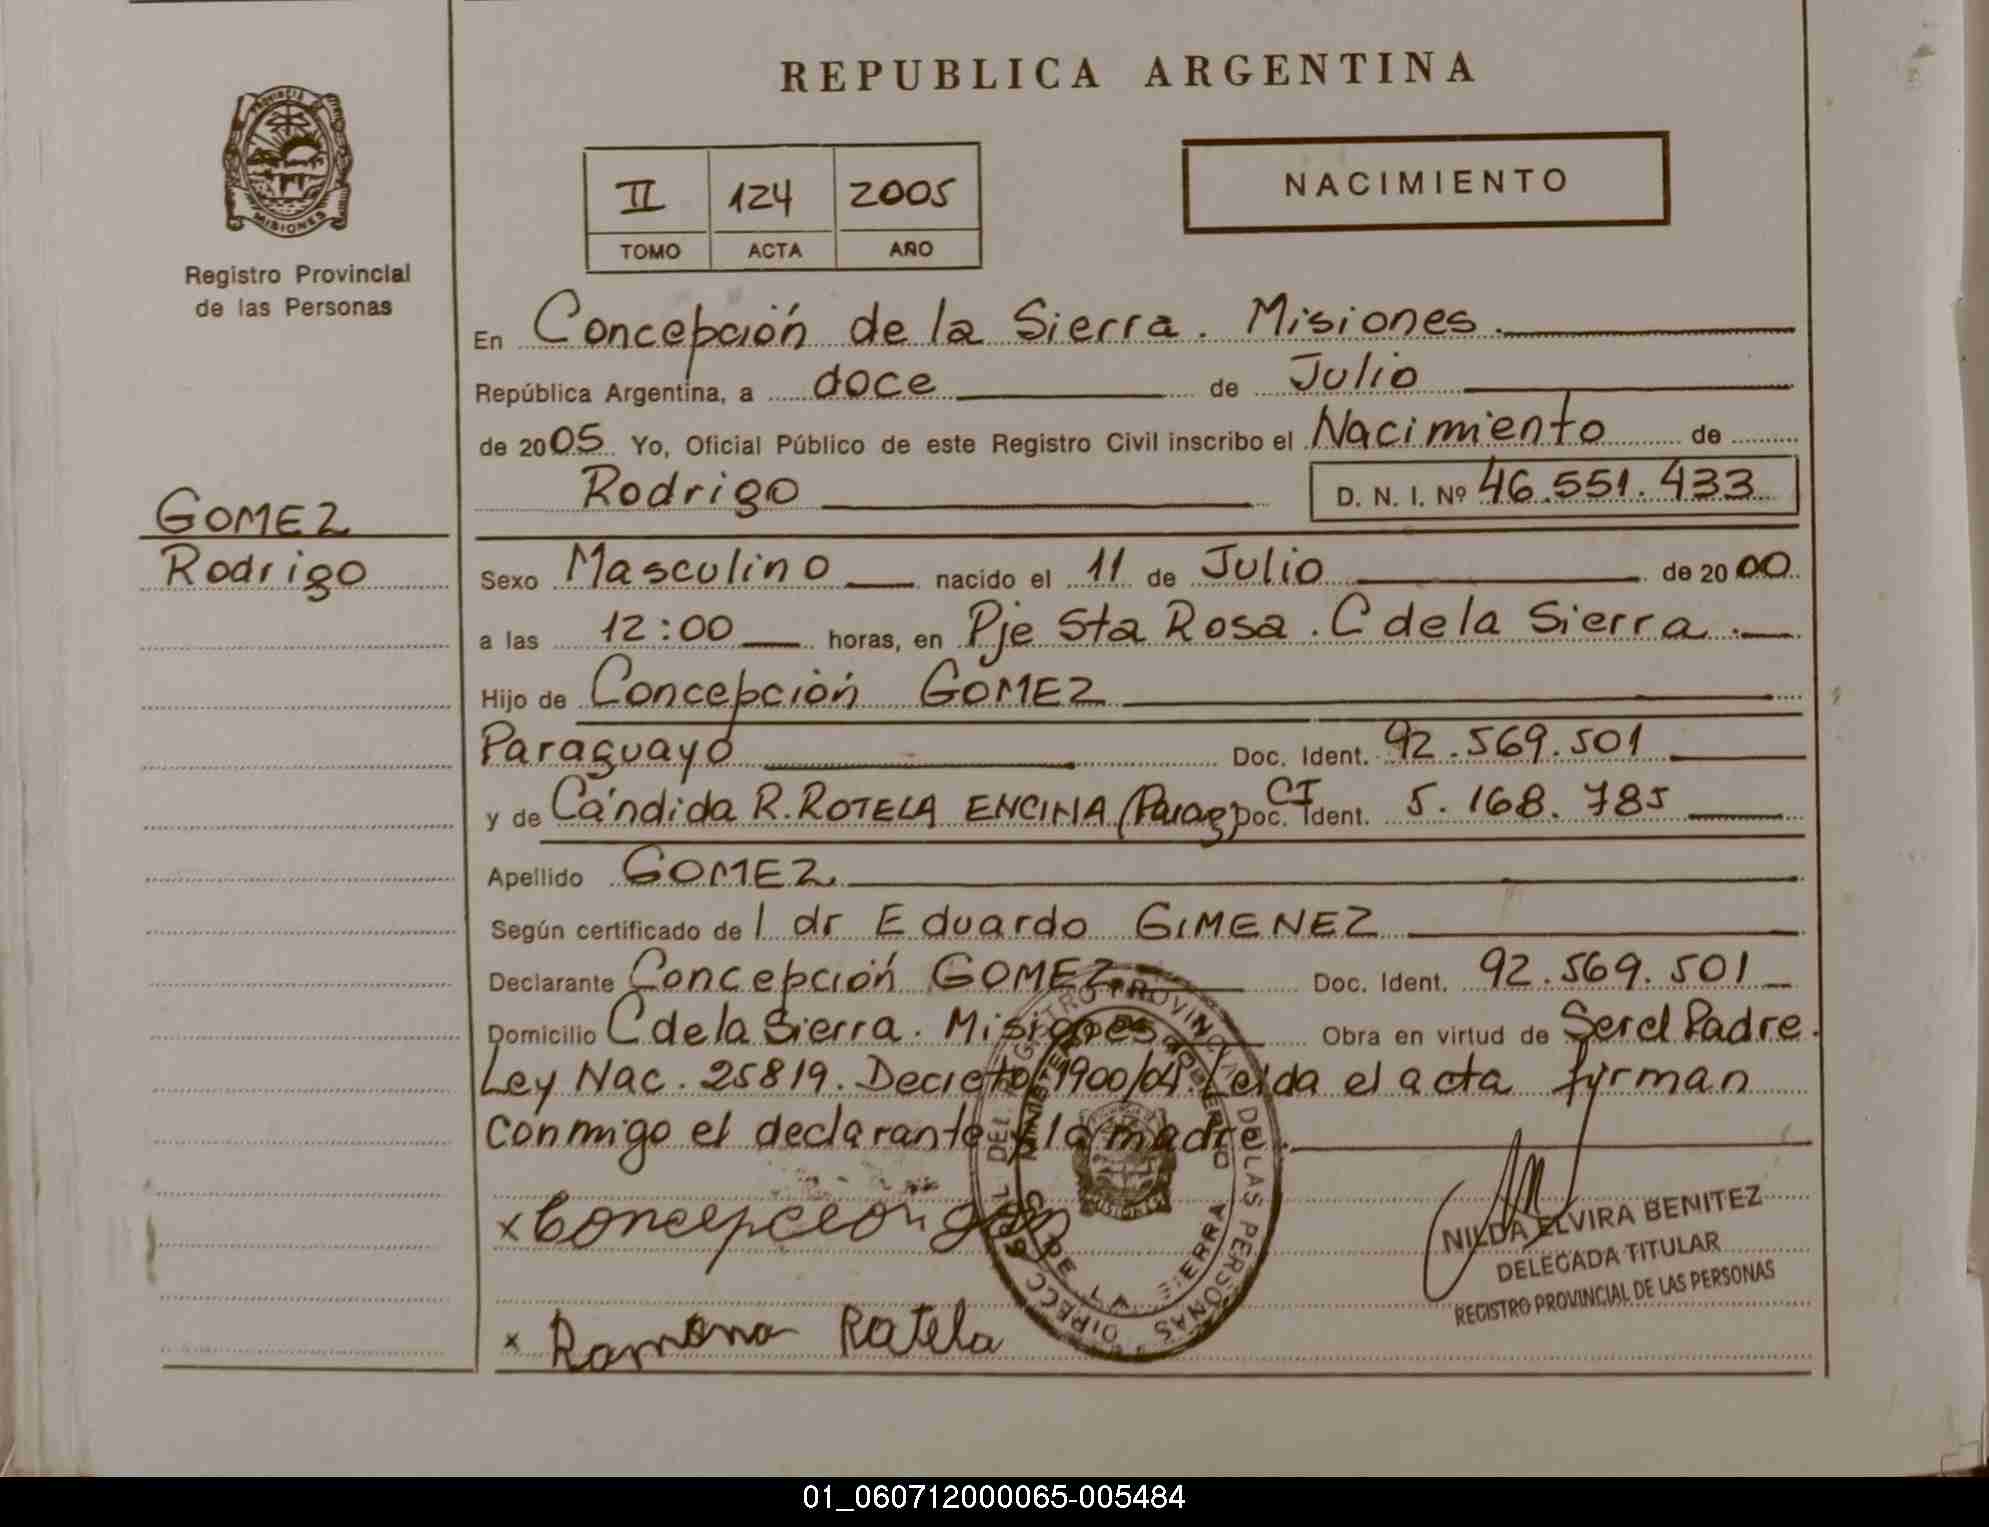 REPUBLICA ARGENTINA
PROVINCIA DE
MISIONES
Registro Provincial
de las Personas
II 124 2005
TOMO ACTA AÑO
NACIMIENTO
En Concepción de la Sierra. Misiones.
República Argentina, a doce de Julio
de 2005 Yo, Oficial Público de este Registro Civil inscribo el Nacimiento de
Rodrigo D. N. I. Nº 46.551.433
GOMEZ
Rodrigo
Sexo Masculino nacido el 11 de Julio de 2000
a las 12:00 horas, en Pje Sta Rosa. C de la Sierra.
Hijo de Concepción GOMEZ
Paraguayo Doc. Ident. 92.569.501
y de Cándida R. ROTELA ENCINA (Parag) CI Doc. Ident. 5.168.785
Apellido GOMEZ
Según certificado de l dr Eduardo GIMENEZ
Declarante Concepción GOMEZ Doc. Ident. 92.569.501
Domicilio C de la Sierra. Misiones Obra en virtud de Ser el Padre.
Ley Nac. 25819. Decreto 1900/04. Leida el acta firman
conmigo el declarante y la madre.
x Concepcion
x Ramona Ratela
DIRECC. GRAL. DEL REGISTRO PROVINCIAL DE LAS PERSONAS
MINISTERIO DE GOBIERNO
C. DE LA SIERRA
MISIONES
NILDA ELVIRA BENITEZ
DELEGADA TITULAR
REGISTRO PROVINCIAL DE LAS PERSONAS
01_060712000065-005484